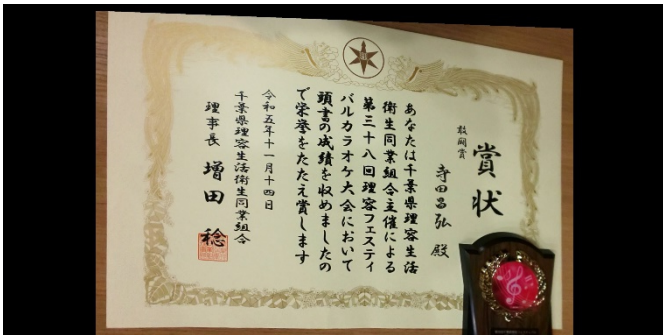 賞状
敢闘賞
寺田昌弘 殿
あなたは千葉県理容生活
衛生同業組合主催による
第三十八回理容フェスティ
バルカラオケ大会において
頭書の成績を収めましたの
で栄誉をたたえ賞します
令和五年十一月十四日
千葉県理容生活衛生同業組合
理事長 増田 稔